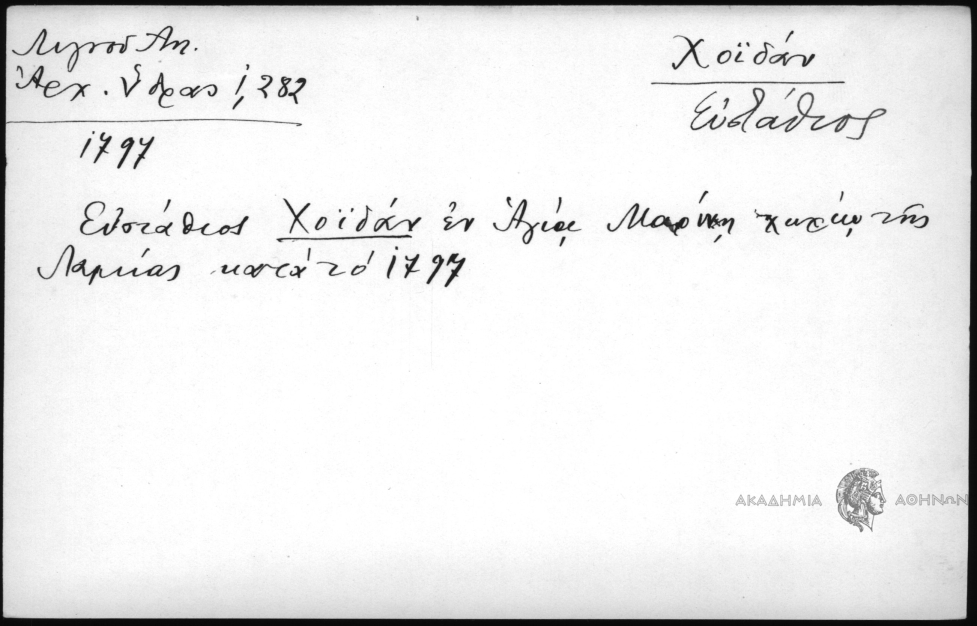 Λιγνού Αν.
Ἀρχ. Ὕδρας 1, 282
1797
Χοϊδάν
Εὐστάθιος
Εὐστάθιος Χοϊδάν ἐν Ἁγίᾳ Μαρίνῃ χωρίῳ τῆς
Λαμίας κατά τό 1797
ΑΚΑΔΗΜΙΑ ΑΘΗΝΩΝ